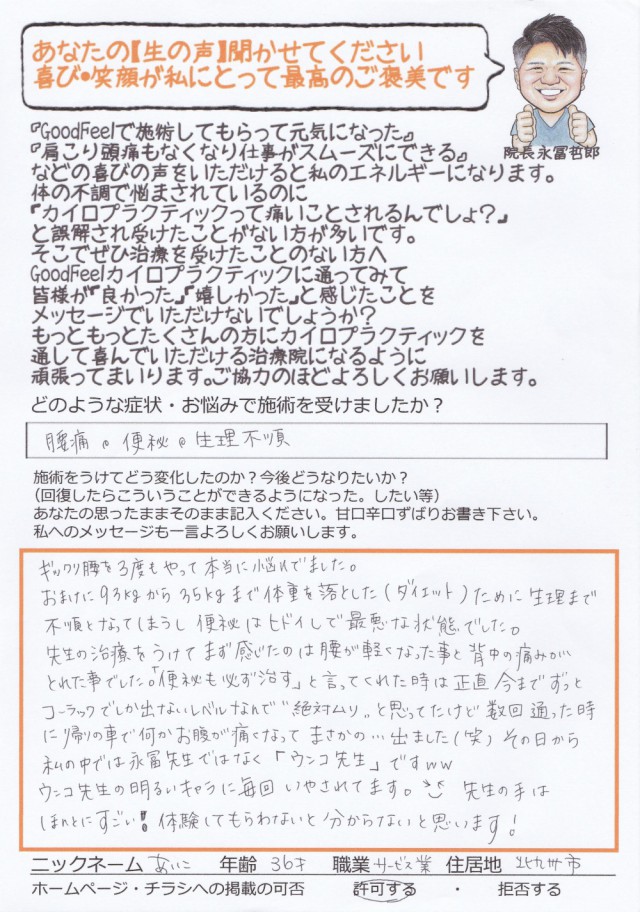 あなたの【生の声】聞かせてください
喜び・笑顔が私にとって最高のご褒美です
院長永冨哲郎
『GoodFeelで施術してもらって元気になった』
『肩こり頭痛もなくなり仕事がスムーズにできる』
などの喜びの声をいただけると私のエネルギーになります。
体の不調で悩まされているのに
『カイロプラクティックって痛いことされるんでしょ?』
と誤解され受けたことがない方が多いです。
そこでぜひ治療を受けたことのない方へ
GoodFeelカイロプラクティックに通ってみて
皆様が『良かった』『嬉しかった』と感じたことを
メッセージでいただけないでしょうか?
もっともっとたくさんの方にカイロプラクティックを
通して喜んでいただける治療院になるように
頑張ってまいります。ご協力のほどよろしくお願いします。
どのような症状・お悩みで施術を受けましたか?
腰痛。便秘。生理不順
施術をうけてどう変化したのか?今後どうなりたいか?
(回復したらこういうことができるようになった。したい等)
あなたの思ったままそのまま記入ください。甘口辛口ずばりお書き下さい。
私へのメッセージも一言よろしくお願いします。
ギックリ腰を3度もやって本当に悩んでました。
おまけに93kgから35kgまで体重を落とした(ダイエット)ために生理まで
不順となってしまうし便秘はヒドイしで最悪な状態でした。
先生の治療をうけてまず感じたのは腰が軽くなった事と背中の痛みが
とれた事でした。「便秘も必ず治す」と言ってくれた時は正直今までずっと
コーラックでしか出ないレベルなんで"絶対ムリ"と思ってたけど数回通った時
に帰りの車で何かお腹が痛くなってまさかの…出ました(笑)その日から
私の中では永冨先生ではなく「ウンコ先生」ですww
ウンコ先生の明るいキャラに毎回いやされてます。先生の手は
ほんとにすごい!体験してもらわないと分からないと思います!
ニックネーム あいこ 年齢 36才 職業 サービス業 住居地 北九州市
ホームページ・チラシへの掲載の可否 許可する ・ 拒否する